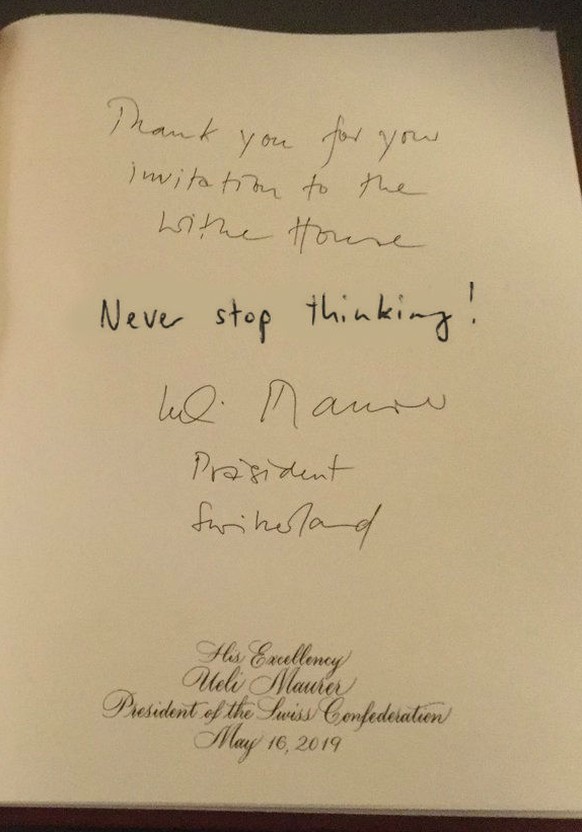 Thank you for your
invitation to the
Withe House
Never stop thinking!
Ueli Maurer
Präsident
Switzerland
His Excellency
Ueli Maurer
President of the Swiss Confederation
May 16, 2019